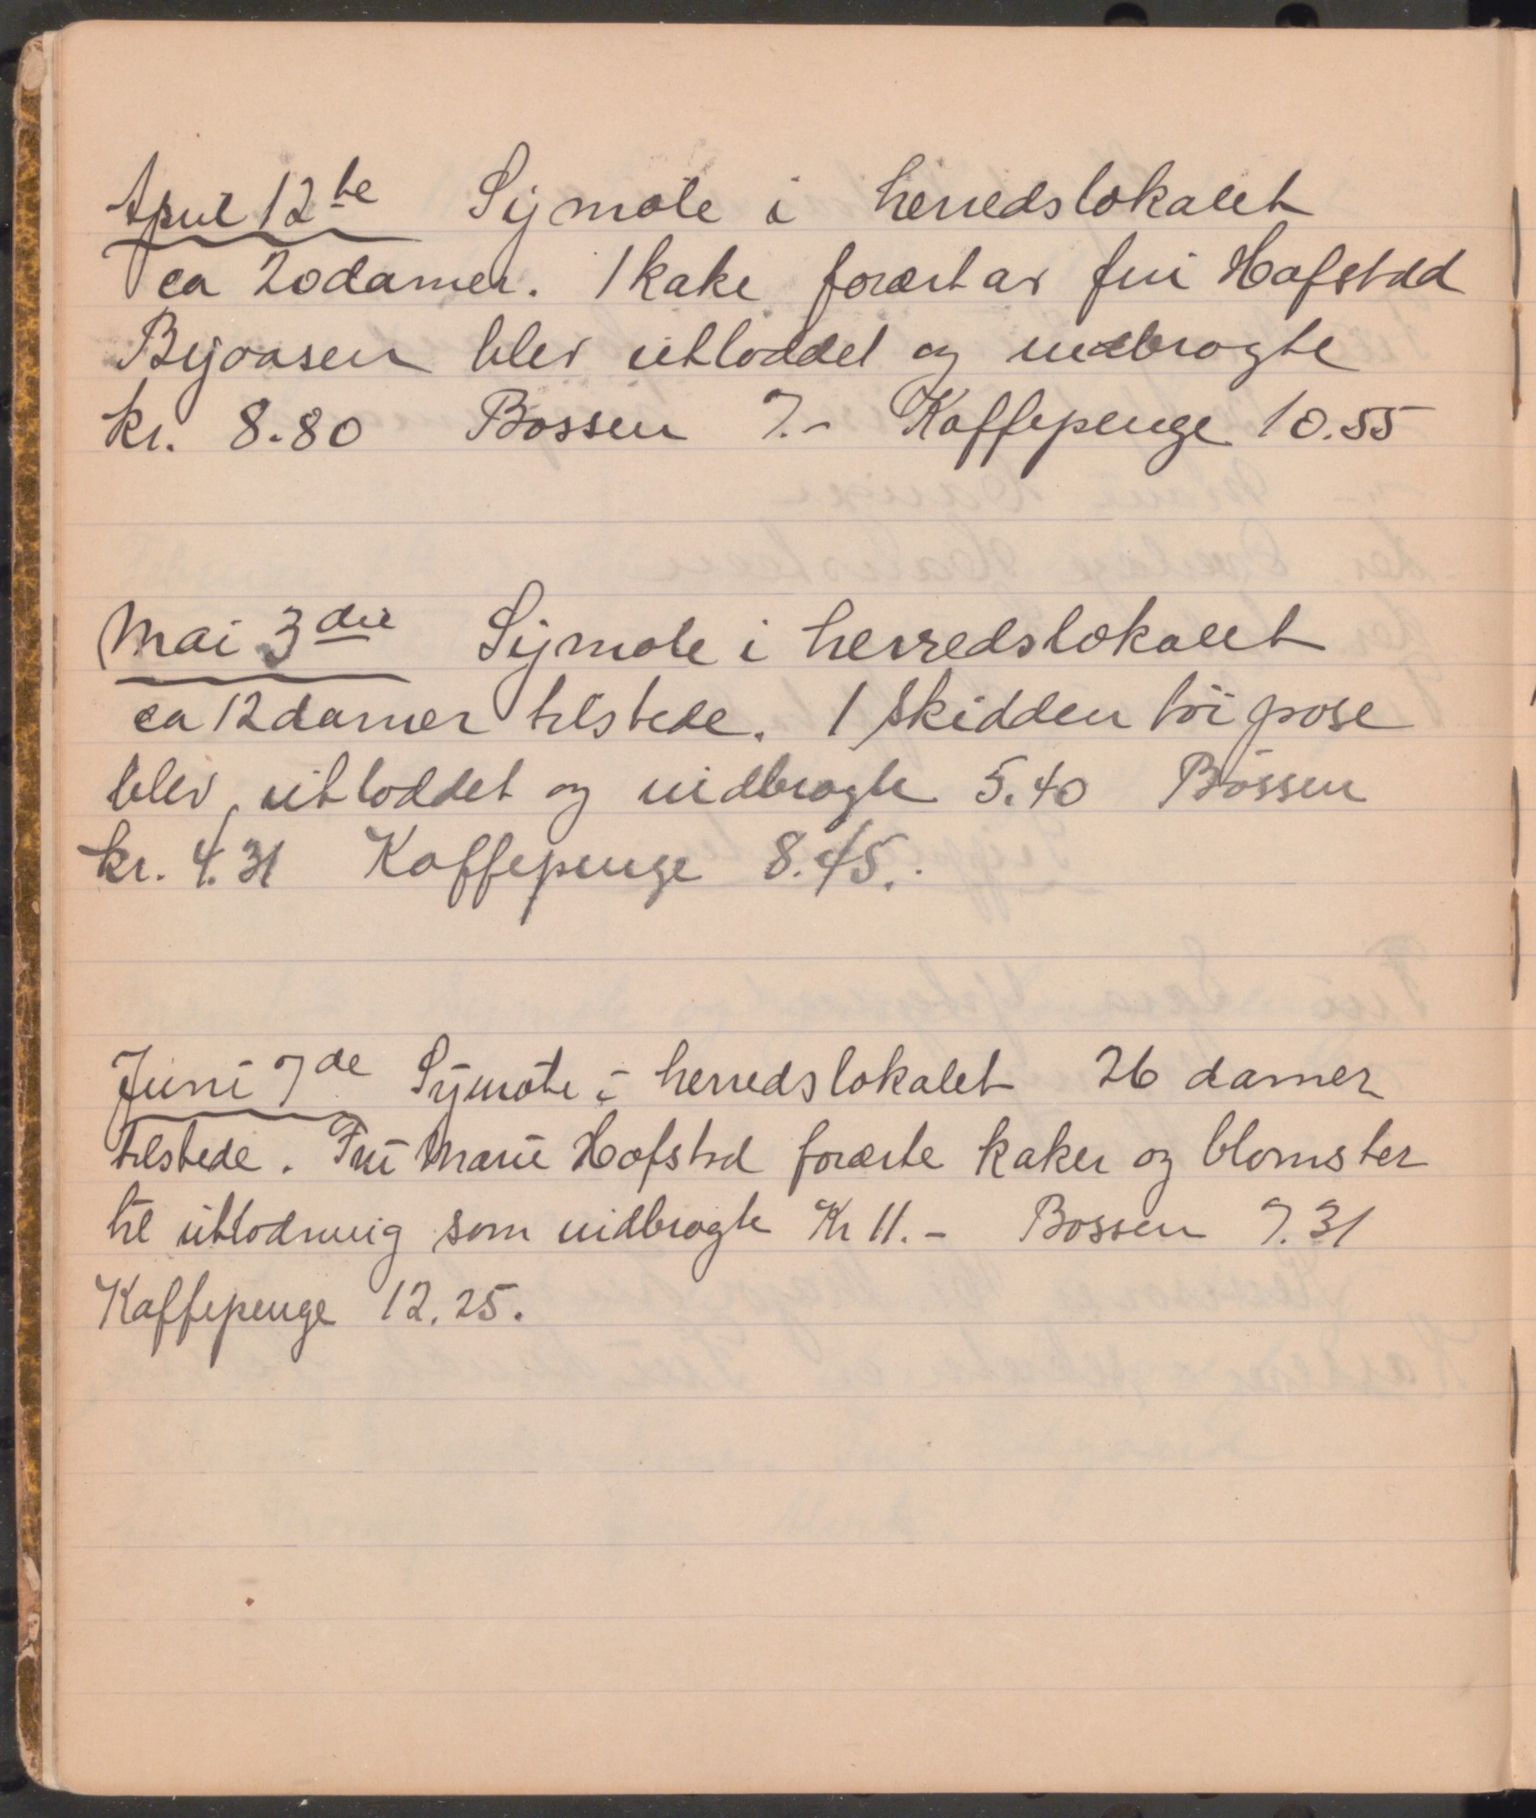 April 12te Symøte i herredslokalet
ca 20 damer. 1 kake forært av fru Hafstad
Byåasen blev utloddet og indbragte
kr. 8.80 Bøssen 7.- Kaffepenge 10.55
Mai 3die Symøte i herredslokalet
ca 12 damer tilstede. 1 skidden töi pose
blev utloddet og indbragte 5.40 Bøssen
kr. 4.31 Kaffepenge 8.45.
Juni 7de Symøte i herredslokalet 26 damer
tilstede. Fru Marie Hafstad forærte kaker og blomster
til utlodning som indbragte Kr 11.- Bøssen 7.31
Kaffepenge 12.25.